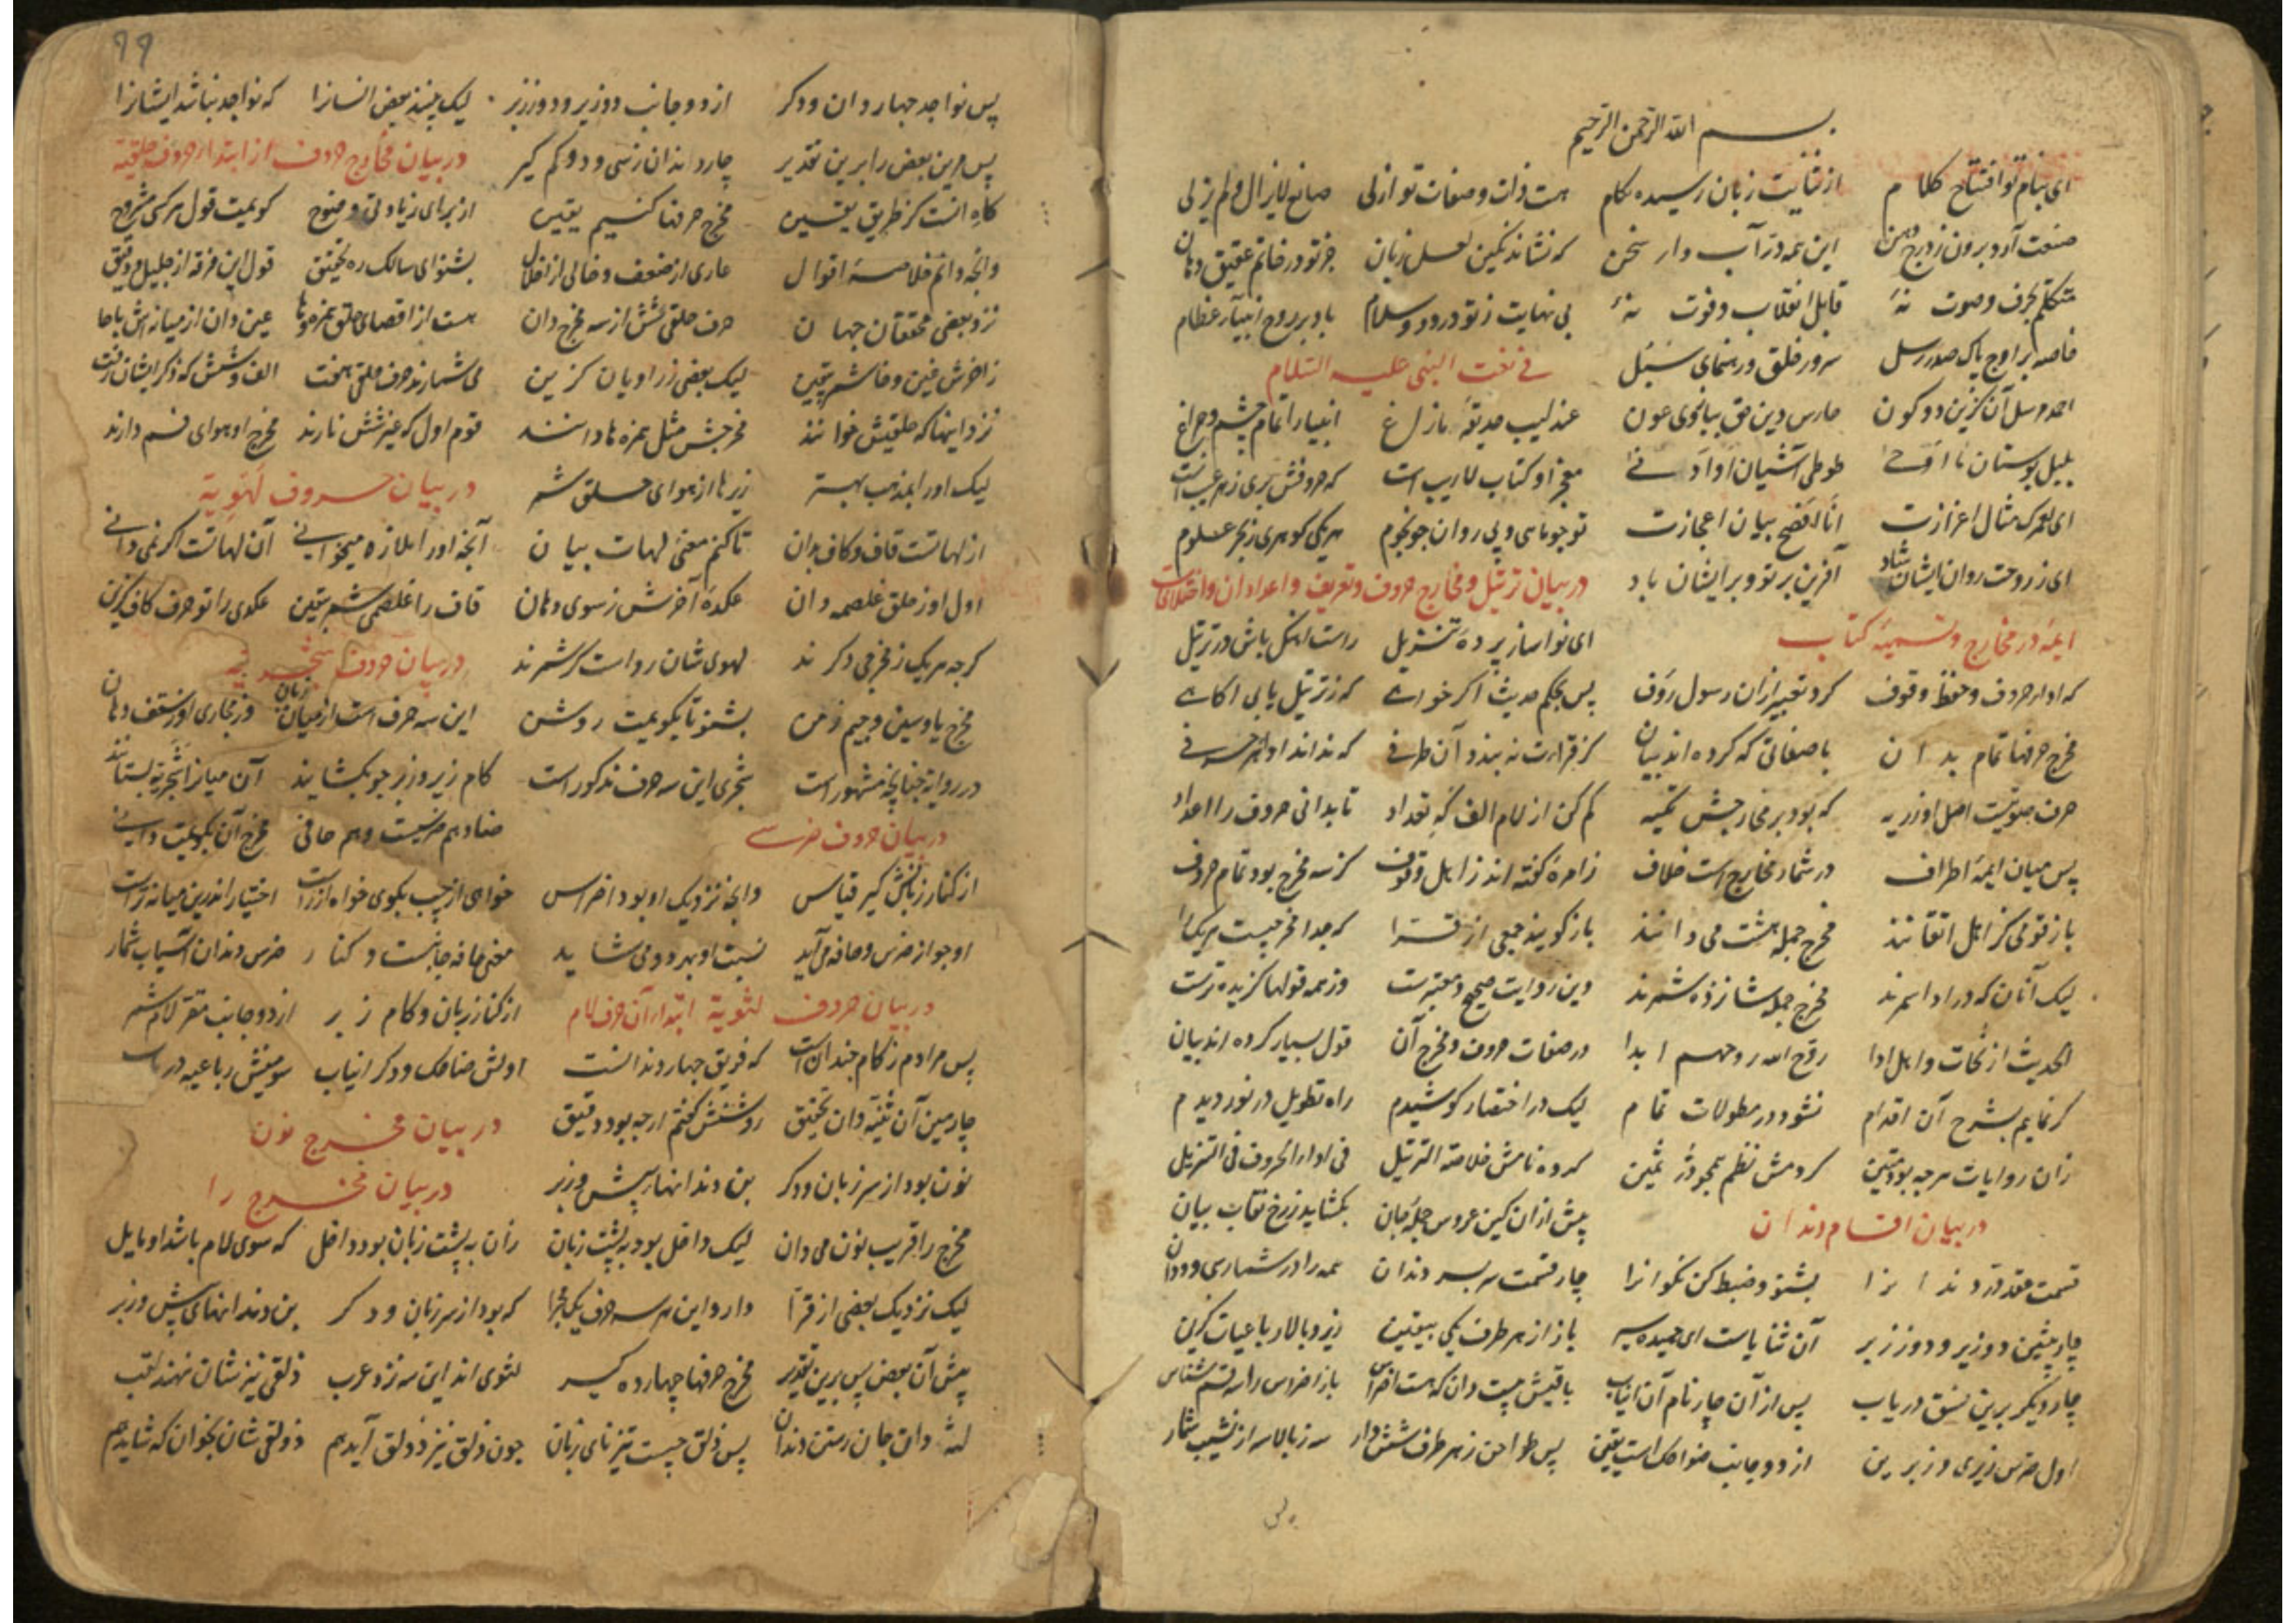 بسم الله الرحمن الرحیم
ای بنام تو افتتاح کلام از ثنایت زبان رسیده بکام هست ذات و صفات تو ازلی صانع لایزال و لم یزلی
صنعت آرد برون ز درج دهن این همه در آب دار سخن که نشاند نکین لعل زبان جز تو در خاتم عقیق دهان
متکلم بحرف و صوت نهٔ قابل انقلاب و فوت نهٔ بی نهایت ز تو درود و سلام باد بر روح انبیآء عظام
خاصه بر اوج پاک صدر رسل سرور خلق و رهنمای سبل فی نعت النبی علیه السلام
احمد مرسل آن کزین دو کون حارس دین حق عون عندلیب حدیقهٔ مازاغ انبیا را تمام چشم و چراغ
بلبل بوستان ما اوحی طوطی آشیان او ادنی معجز او کتاب لاریب است که حروفش بری ز هر عیب است
ای لعمرک مثال اعزازت انا افصح بیان اعجازت تو چو ماهی و پی روان چو نجوم هر یکی کوهری ز بحر علوم
ای ز روحت روان ایشان شاد آفرین بر تو و بر ایشان باد در بیان ترتیل و مخارج حروف و تعریف و اعداد آن و اختلاف
ایمهٔ در مخارج و تسمیهٔ کتاب ای نوا ساز پردهٔ تنزیل راست آهنک باش در ترتیل
که ادا حروف و حفظ وقوف کرد تعبیر ازان رسول رؤف پس بحکم حدیث اکر خواهی که ز ترتیل یابی اکاهی
مخرج حرفها تمام بدان با صفاتی که کرده اند بیان کز قراءت نه بندد آن طرفی که نداند ادا هر حرفی
حرف صوتیت اصل او زریه که بود بر مخارجش تکیه کم کن از لام الف که تعداد تا بدانی حروف را اعداد
پس میان ایمهٔ اطراف در شمار مخارج است خلاف زامرهٔ کفته اند ز اهل وقوف کز سه مخرج بود تمام حروف
باز قومی کز اهل اتقانند مخرج جمله هشت می دانند باز کویند جمعی از قرا که جدا مخرجیست هر یک را
لیک آنان که در ادا سمرند مخرج جمله شانزده شمرند وین روایت صحیح و معتبرست وز همه قولها کزیده ترست
الحدیث از نحات و اهل ادا روح الله روحهم ابدا در صفات حروف و مخرج آن قول بسیار کرده اند بیان
کر نمایم بشرح آن اقدام نشود در مطولات تمام لیک در اختصار کوشیدم راه تطویل در نوردیدم
زان روایات هر چه بود متین کردمش نظم همچو در ثمین کرده نامش خلاصة الترتیل فی اداء الحروف فی التنزیل
در بیان اقسام دندان پیش ازان کین عروس حجله جان بکشاید ز رخ نقاب بیان
قسمت عقد در دندانرا بشنو و ضبط کن نکو انرا چار قسمت سر بسر دندان همه را در شمار سی و دو دان
چار پیشین دو زیر و دو ز زبر آن ثنایاست ای حمیده سیر باز از هر طرف یکی بیقین زیر و بالا رباعیات کزین
چار دیکر برین نسق دریاب پس از آن چار نام آن انیاب باقیش بیست دان که هست اضراس باز اضراس را سه قسم شناس
اول ضرس زیری و زبرین از دو جانب ضواحک است یقین پس طواحن ز هر طرف شش دار سه ز بالا سه از نشیب شمار
پس نواجد چهار دان و دکر از دو جانب دو زیر و دو ز زبر لیک بینند بعض انسانرا که نواجد نباشد ایشانرا
پس مرین بعض را برین تقدیر چارده اند آن ز سی و دو کم کیر در بیان مخارج حروف از ابتداء حروف حلقیه
کاه انست کز طریق یقین مخرج حرفها کنیم یقین از برای زیادتی و فتوح کویمت قول هر کسی مشروح
وانچه دانم خلاصهٔ اقوال عاری از ضعف و خالی از اخلال بشنو ای سالک ره تحقیق قول این فرقه از جلیل و دقیق
نزد بعضی محققان جهان حرف حلقی شش از سه مخرج دان هست از اقصای حلق همزه و ها عین دان از میانه اش با حا
ز اخرش غین و خا شمر بیقین لیک بعضی ز راویان کزین می شمارند حرف حلقی هفت الف و شش که ذکر ایشان رفت
نزد اینها که حلقیش خوانند مخرجش مثل همزه ها دانند قوم اول که غیر شش نارند مخرج او هوای فم دارند
لیک او را بمذهب بهتر زیرها از هوای حلق شمر در بیان حروف لهویة
از لهاتست قاف و کاف بدان تا کنم معنی لهات بیان آنچه او را ملازه میخوانی آن لهاتست اکر نمی دانی
اول او ز حلق غلصمه دان عکدهٔ آخرش ز سوی دهان قاف را غلصمی شمر بیقین عکدی را تو حرف کاف کزین
کر چه هر یک ز مخرجی دکرند لهوی شان رواست کر شمرند در بیان حروف شجریه
مخرج یا و شین و جیم ز من بشنو تا بکویمت روشن این سه حرف است از میان زبان وز محاذی او ز سقف دهان
در روایة چنانچه مشهور است شجری این سه حرف مذکور است کام زیر و زبر چو بکشایند آن میانرا شجریه بستانند
در بیان حروف ضرسی ضاد هم ضرسیست و هم حافی مخرج آن بکویمت وافی
از کنار زبانش کیر قیاس وانچه نزدیک او بود اضراس خواهی از چپ بکوی خواه از راست اختیار اندرین میانه تراست
او چو از ضرس و حافه می آید نسبت او بهر دو می شاید معنی حافه جانبست و کنار ضرس دندان آسیاب شمار
در بیان حروف لثویة ابتداء آن حرف لام از کنار زبان و کام زبر از دو جانب مقر لام شمر
پس مرادم ز کام چندانست که فویق چهار دندانست اولش ضاحک و دکر انیاب سومینش رباعیه دریاب
چارمین آن ثنیه دان تحقیق روشنش کفتم ار چه بود دقیق در بیان مخرج نون
نون بود از سر زبان و دکر بن دندانهاء پیش و زبر در بیان مخرج را
مخرج را قریب نون می دان لیک داخل بود به پشت زبان زان به پشت زبان بود داخل که سوی لام باشد او مایل
لیک نزدیک بعضی از قرا دارد این هر سه حرف یک مجرا که بود از سر زبان و دکر بن دندانهای پیش و زبر
پیش آن بعض پس برین تقدیر مخرج حرفها چهارده کیر لثوی اند این سه نزد عرب ذلقی نیز شان نهند لقب
لثه دان جان رستن دندان پس ذلق چیست تیز نای زبان چون ذلق نیز ذولق آید هم ذولقی شان بخوان که شاید هم